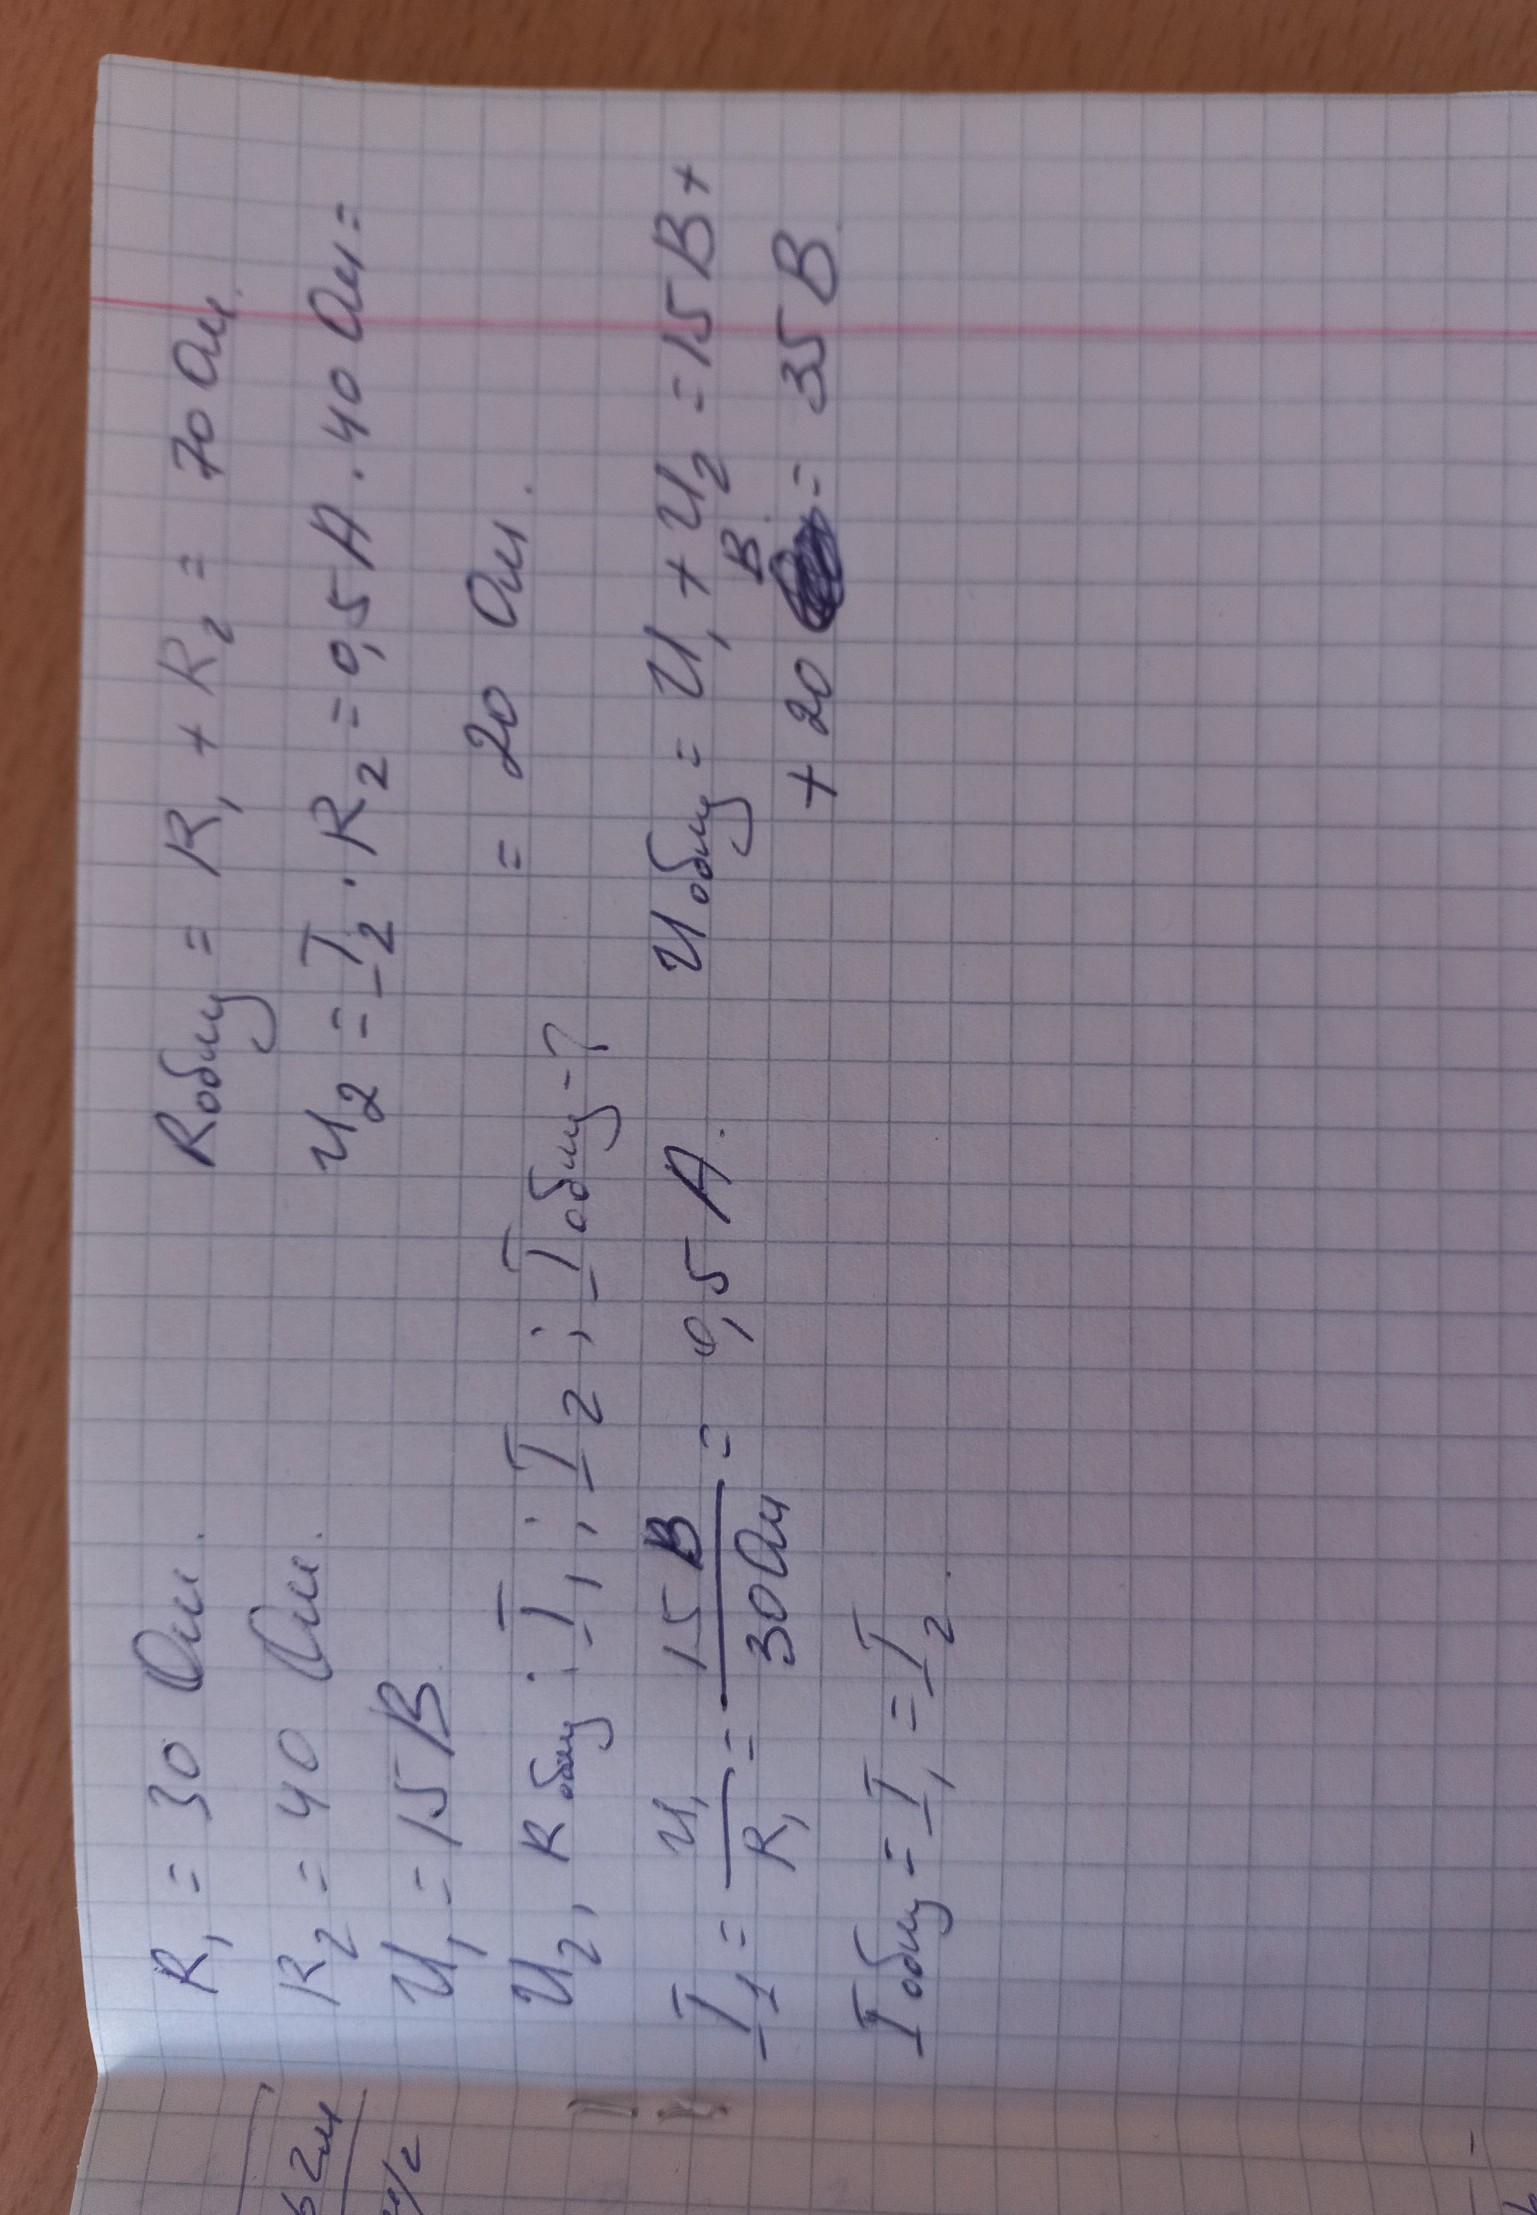 R₁ = 30 Ом.
R₂ = 40 Ом.
U₁ = 15 В
U₂, Rобщ; I₁; I₂; Iобщ - ?
I₁ = U₁/R₁ = 15 В/30 Ом = 0,5 А.
Iобщ = I₁ = I₂.
Rобщ = R₁ + R₂ = 70 Ом.
U₂ = I₂ · R₂ = 0,5 А · 40 Ом =
= 20 Ом.
Uобщ = U₁ + U₂ = 15 В +
+ 20 В = 35 В.